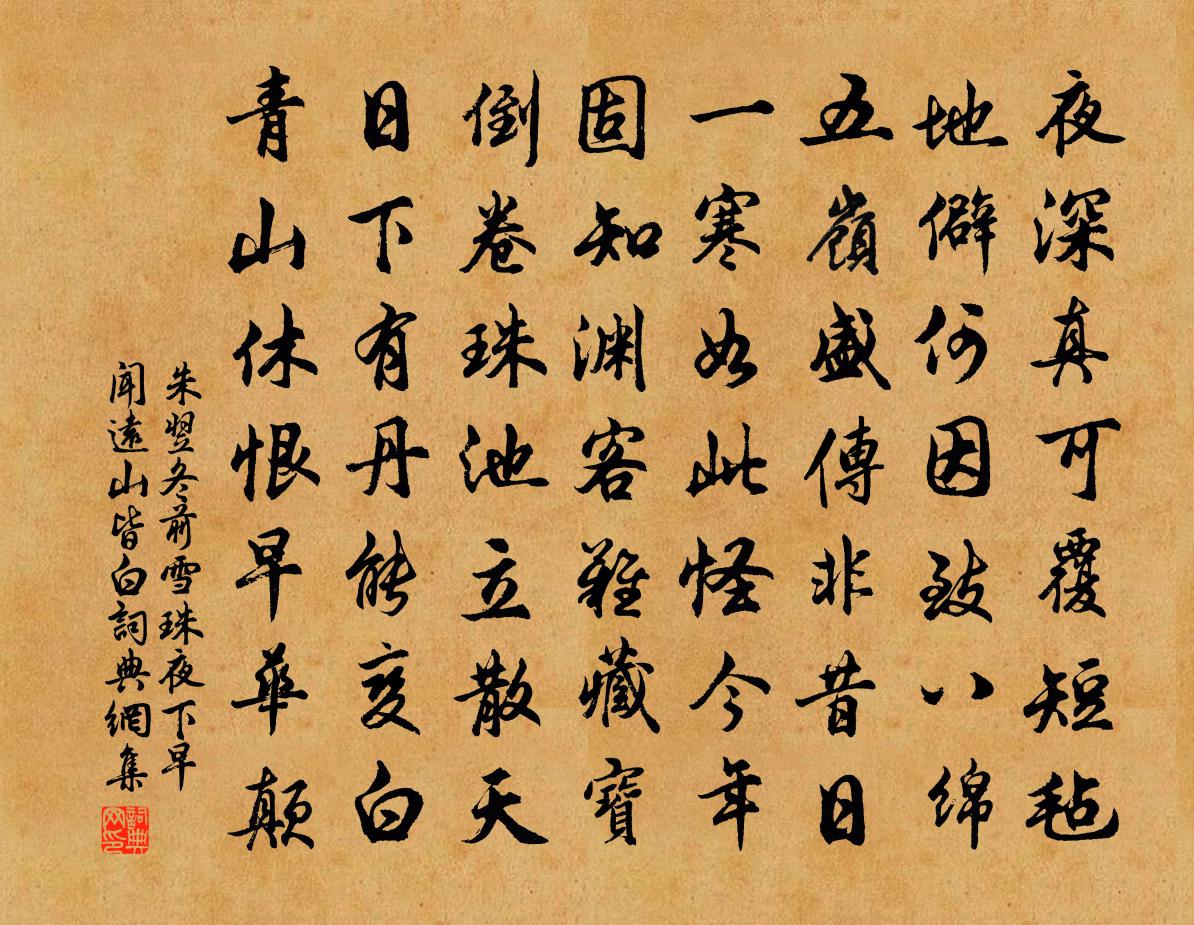 夜深真可覆短毡
地僻何因致八綿
五嶺盛傳非昔日
一寒如此怪今年
固知淵客難藏寶
倒卷珠池立散天
日下有丹能变白
青山休恨早華顛
朱翌冬前雪珠夜下早
聞遠山皆白詞典網集
詞典
网印